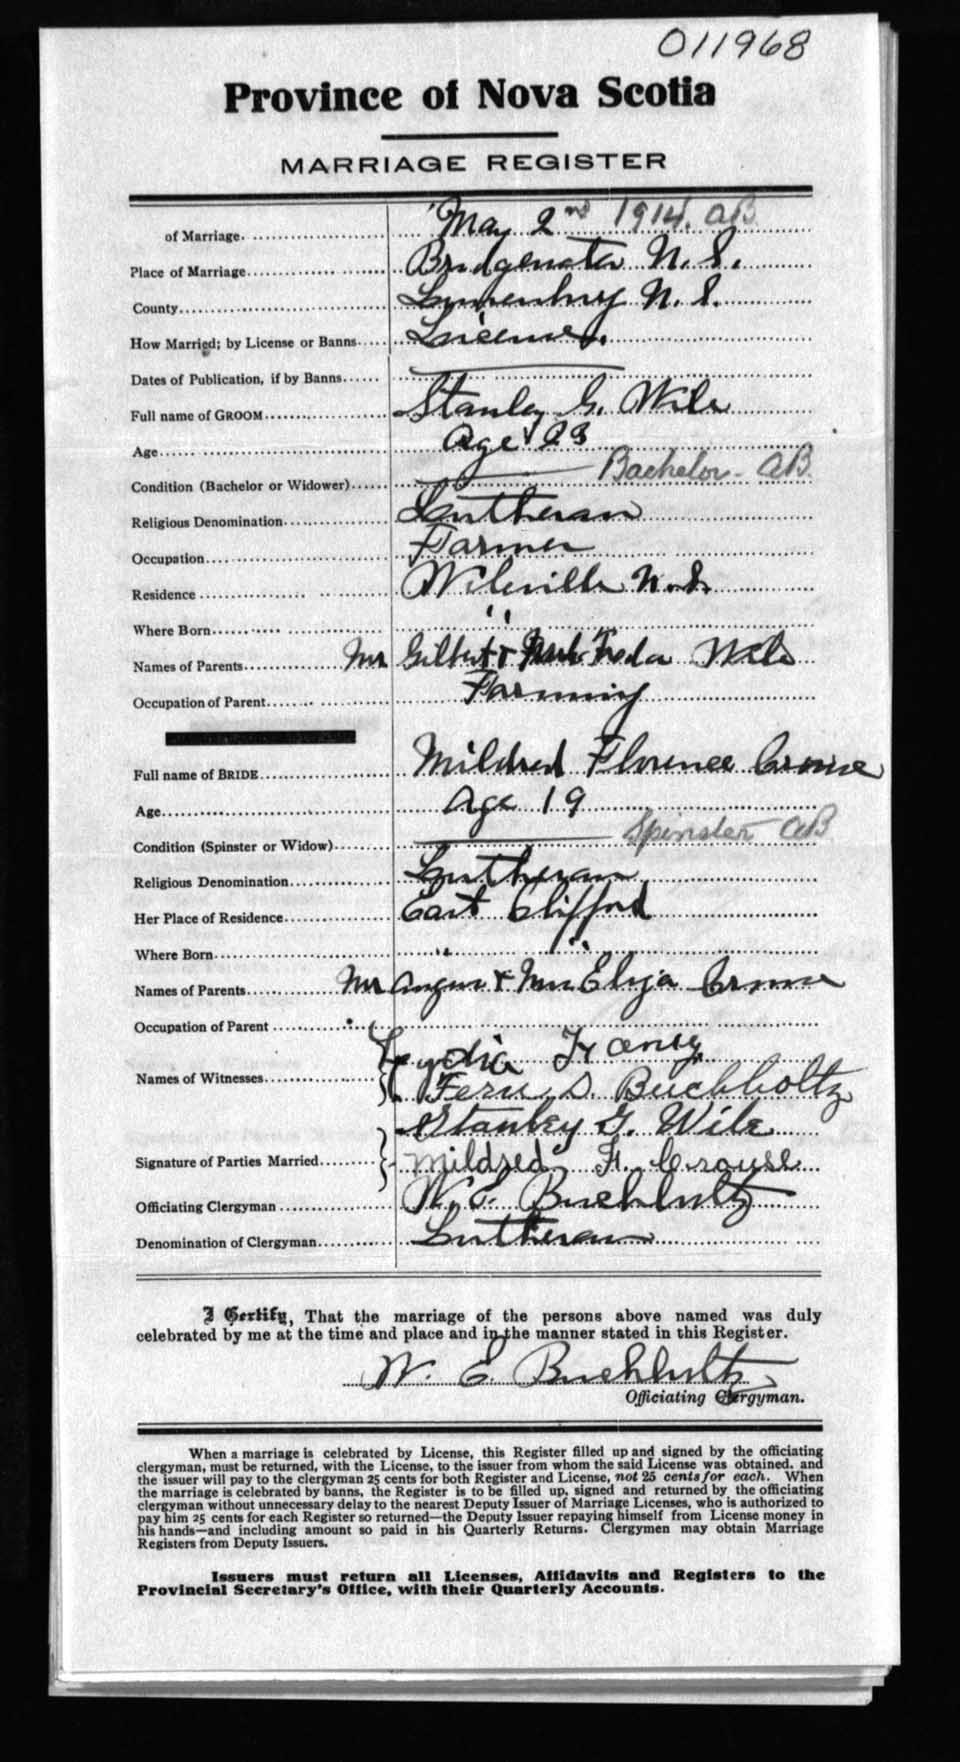 011968
Province of Nova Scotia
MARRIAGE REGISTER
of Marriage May 2nd 1914. AB
Place of Marriage Bridgewater N.S.
County Lunenburg N.S.
How Married; by License or Banns License.
Dates of Publication, if by Banns
Full name of GROOM Stanley G. Wile
Age Age 23
Condition (Bachelor or Widower) Bachelor - AB
Religious Denomination Lutheran
Occupation Farmer
Residence Wileville N.S.
Where Born "
Names of Parents Mr Gilbert & Mrs Freda Wile
Occupation of Parent Farming
Full name of BRIDE Mildred Florence Crouse
Age Age 19
Condition (Spinster or Widow) Spinster AB
Religious Denomination Lutheran
Her Place of Residence East Clifford
Where Born " "
Names of Parents Mr Angus & Mrs Eliza Crouse
Occupation of Parent
Lydia
Names of Witnesses Fern S. Buchholtz
Stanley G. Wile
Signature of Parties Married Mildred F. Crouse
Officiating Clergyman W. E. Buchholtz
Denomination of Clergyman Lutheran
I Certify, That the marriage of the persons above named was duly
celebrated by me at the time and place and in the manner stated in this Register.
W. E. Buchholtz
Officiating Clergyman.
When a marriage is celebrated by License, this Register filled up and signed by the officiating
clergyman, must be returned, with the License, to the issuer from whom the said License was obtained. and
the issuer will pay to the clergyman 25 cents for both Register and License, not 25 cents for each. When
the marriage is celebrated by banns, the Register is to be filled up, signed and returned by the officiating
clergyman without unnecessary delay to the nearest Deputy Issuer of Marriage Licenses, who is authorized to
pay him 25 cents for each Register so returned—the Deputy Issuer repaying himself from License money in
his hands—and including amount so paid in his Quarterly Returns. Clergymen may obtain Marriage
Registers from Deputy Issuers.
Issuers must return all Licenses, Affidavits and Registers to the
Provincial Secretary's Office, with their Quarterly Accounts.